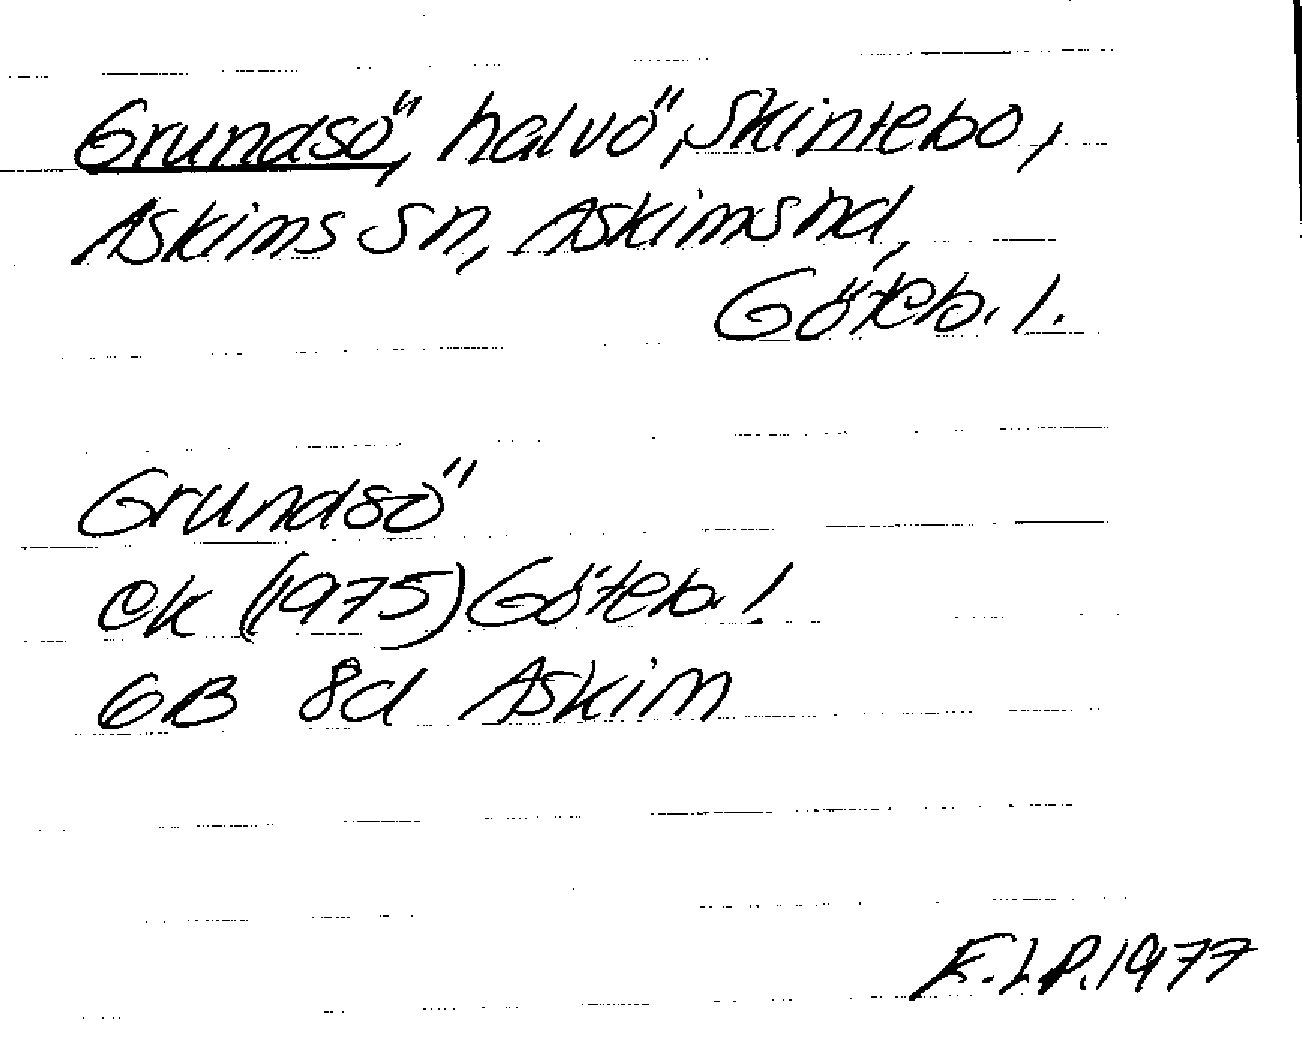 Grundsö, halvö, Skintebo,
Askims sn, Askims hd,
Göteb. l.
Grundsö
ek (1975) Göteb. l.
6B 8d Askim
E.L.P. 1977